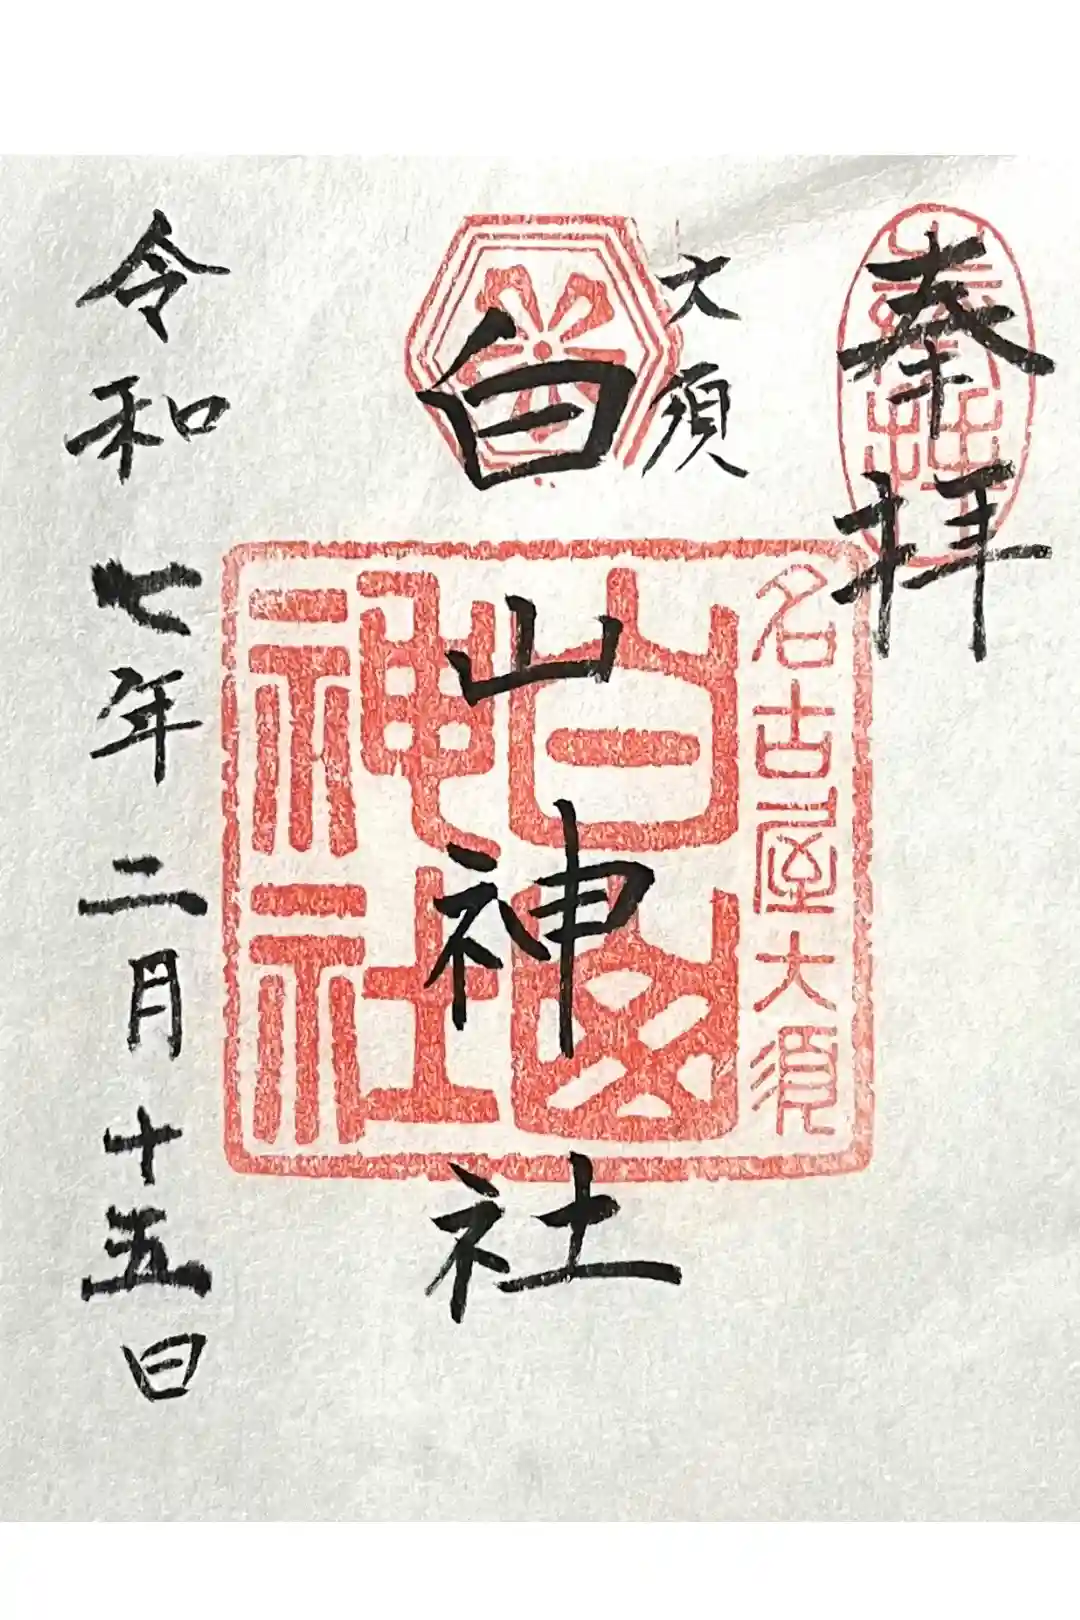 奉拝
大須
白山神社
名古屋大須
白山
神社
令和七年二月十五日